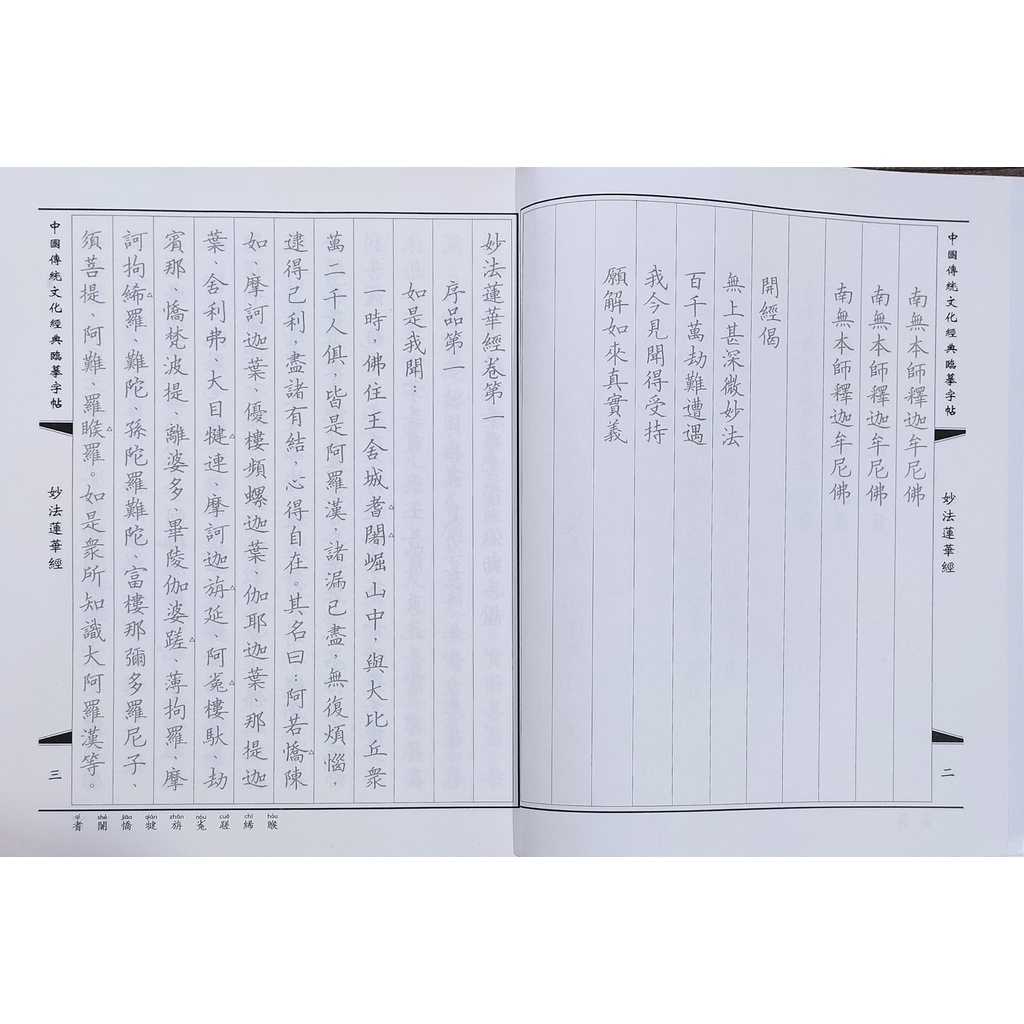 中國傳統文化經典臨摹字帖
妙法蓮華經
二
南無本師釋迦牟尼佛
南無本師釋迦牟尼佛
南無本師釋迦牟尼佛
開經偈
無上甚深微妙法
百千萬劫難遭遇
我今見聞得受持
願解如來真實義
妙法蓮華經卷第一
序品第一
如是我聞：
一時，佛住王舍城耆闍崛山中，與大比丘眾
萬二千人俱，皆是阿羅漢，諸漏已盡，無復煩惱，
逮得己利，盡諸有結，心得自在。其名曰：阿若憍陳
如、摩訶迦葉、優樓頻螺迦葉、伽耶迦葉、那提迦
葉、舍利弗、大目犍連、摩訶迦旃延、阿㝹樓馱、劫
賓那、憍梵波提、離婆多、畢陵伽婆蹉、薄拘羅、摩
訶拘絺羅、難陀、孫陀羅難陀、富樓那彌多羅尼子、
須菩提、阿難、羅睺羅。如是眾所知識大阿羅漢等。
中國傳統文化經典臨摹字帖
妙法蓮華經
三
qí shé jiāo qián zhān nóu cuō chī hóu
耆 闍 憍 犍 旃 㝹 蹉 絺 睺